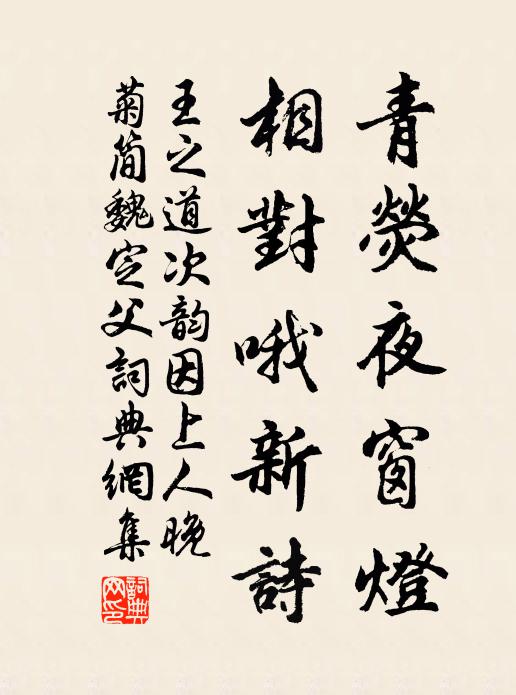 青熒夜窗燈
相對哦新詩
王之道次韵因上人晚
菊簡魏定父詞典網集
詞典网印